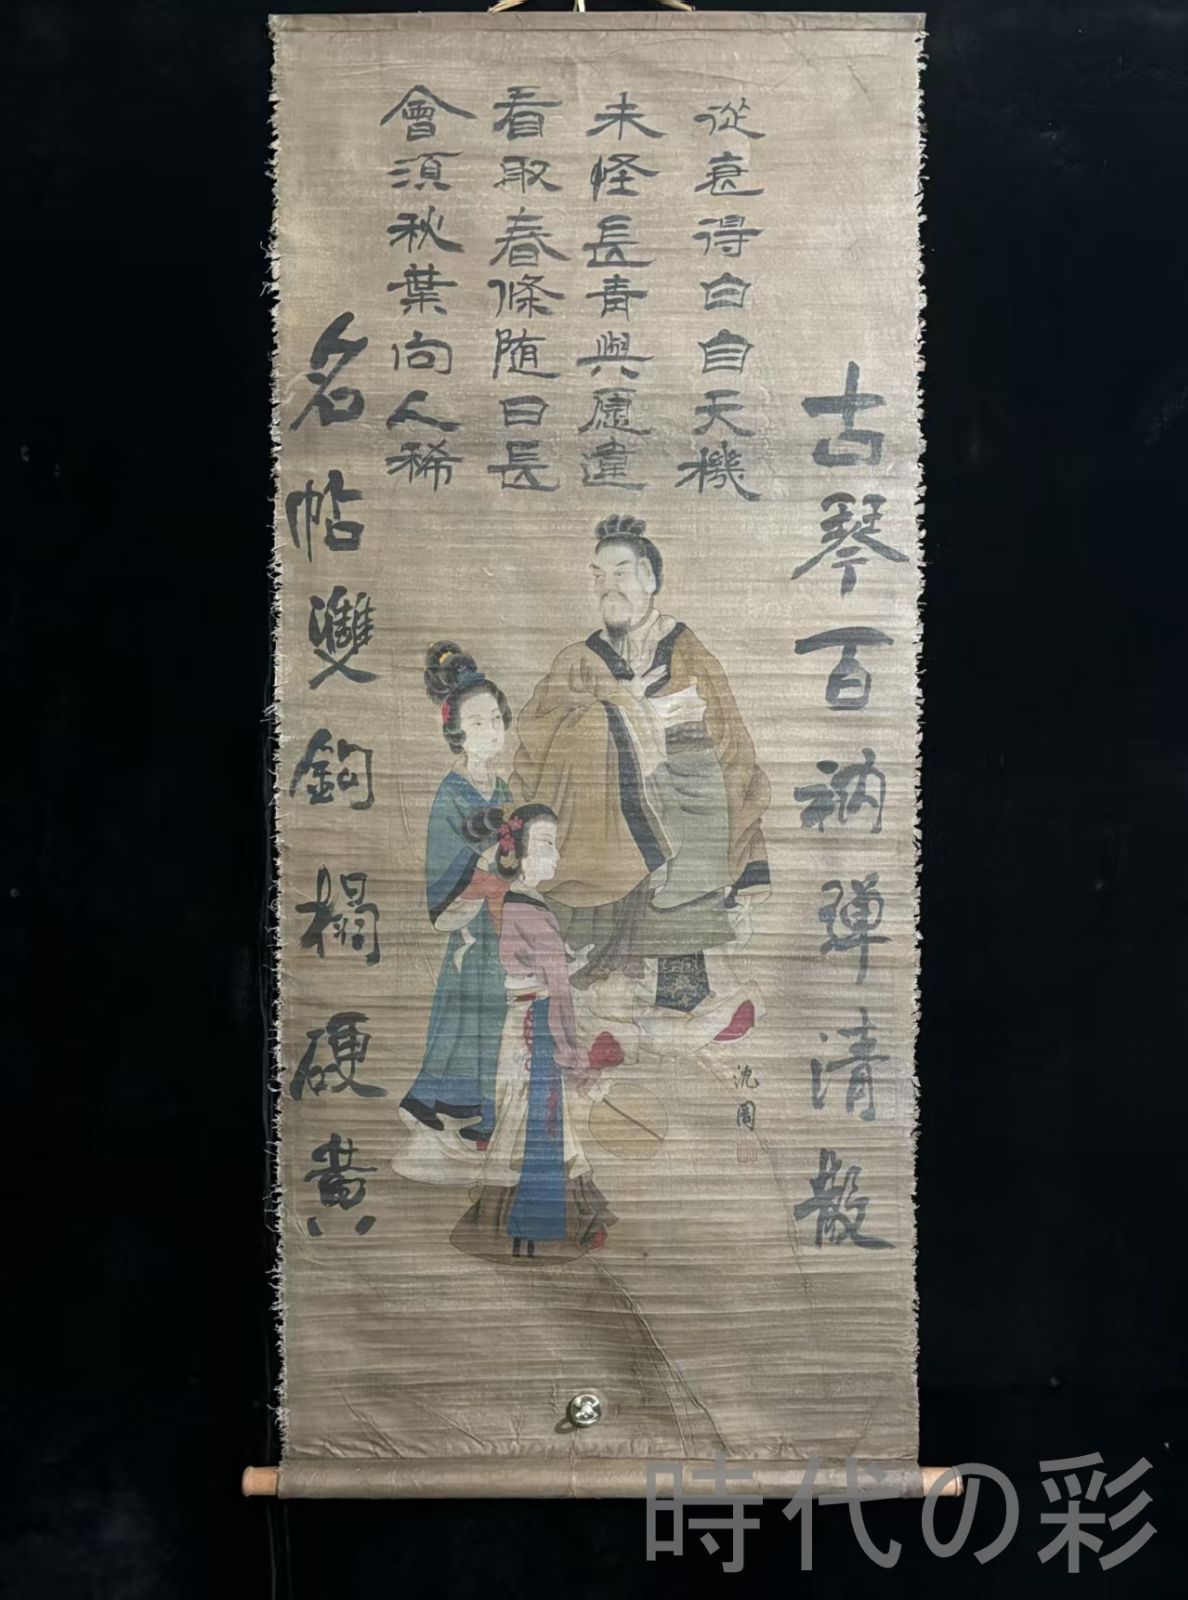 從衰得白自天機
未怪長青與願違
看取春條隨日長
會須秋葉向人稀
古琴百衲彈清散
名帖雙鉤搨硬黃
沈周
時代の彩